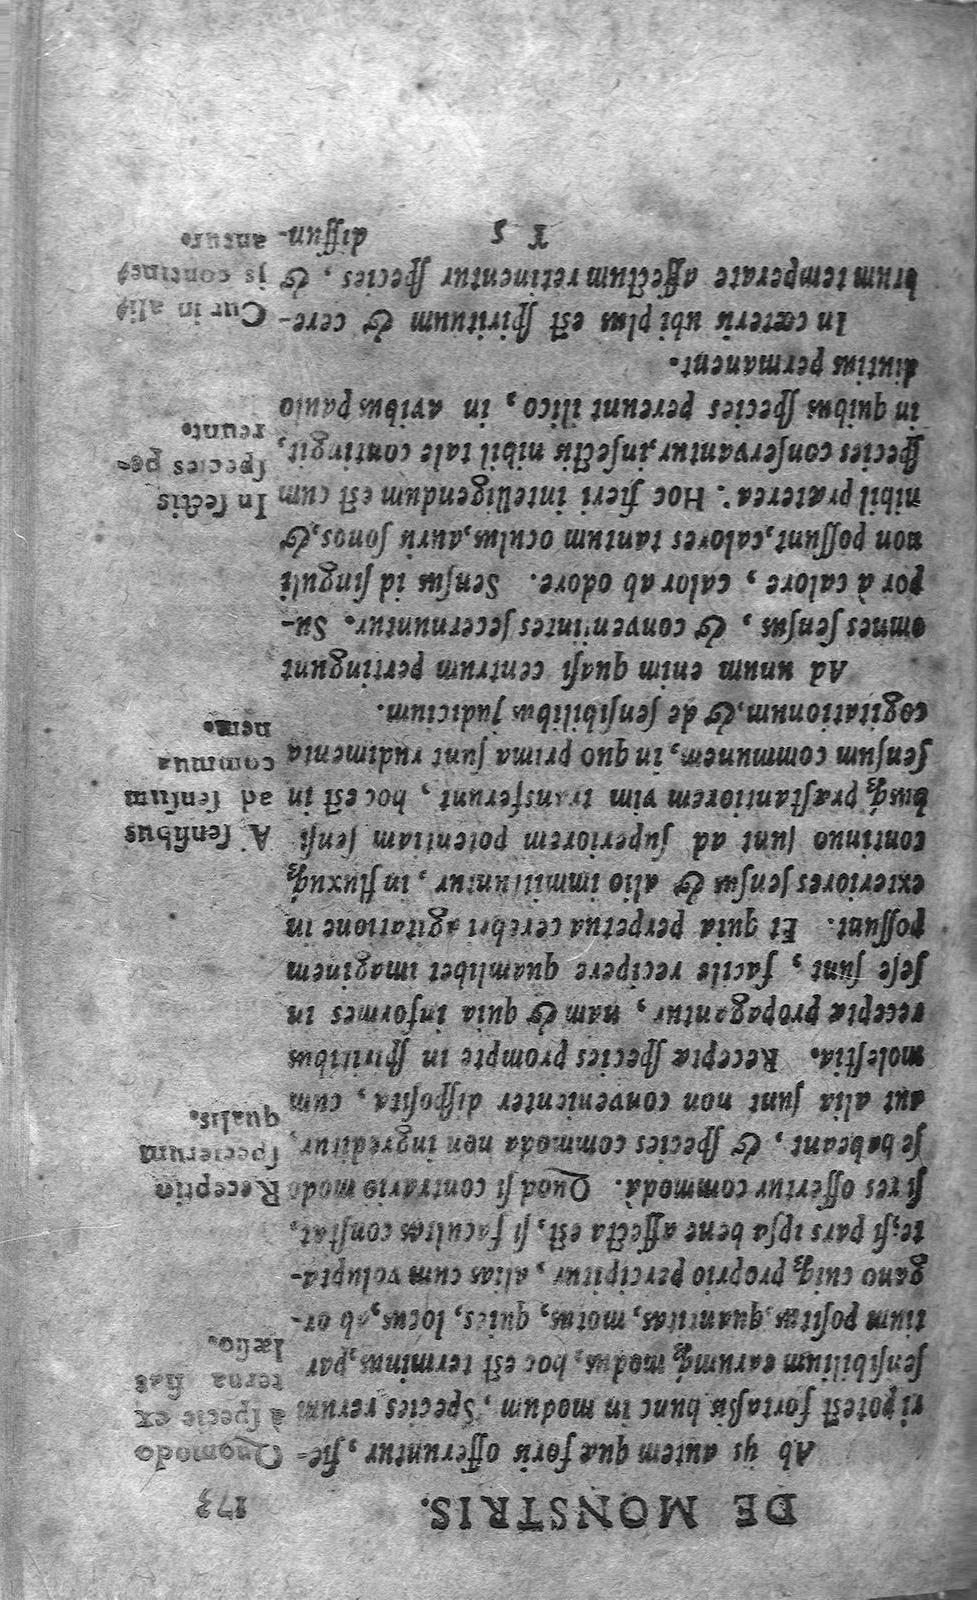 DE MONSTRIS. 173
Ab ijs autem quæ foris offeruntur, fie-
ri potest fortaſsis hunc in modum, Species rerum
ſenſibilium earumq́; modus, hoc est terminus, par
tium poſitus, quantitas, motus, quies, locus, ab or-
gano cuiq́; proprio percipitur, alias cum volupta-
te; ſi pars ipſa bene affecta est, ſi facultas conſtat,
ſi res offertur commoda. Quod ſi contrario modo
ſe habeant, & ſpecies commoda non ingreditur,
aut alia ſunt non convenienter diſpoſita, cum
moleſtia. Receptæ ſpecies prompte in ſpiritibus
receptæ propagantur, nam & quia informes in
ſeſe ſunt, facile recipere quamlibet imaginem
poſſunt. Et quia perpetua cerebri agitatione in
exteriores ſenſus & alio immittuntur, in fluxuq́;
continuo ſunt ad ſuperiorem potentiam ſenſi
busq́; præſtantiorem vim transferunt, hoc est in
ſenſum communem, in quo prima ſunt rudimenta
cogitationum, & de ſenſibilibus judicium.
Ad unum enim quaſi centrum pertingunt
omnes ſenſus, & convenientes ſecernuntur. Su-
por à calore, calor ab odore. Senſus id ſinguli
non poſſunt, calores tantum oculus, auris ſonos, &
nihil præterea. Hoc fieri intelligendum est cum
ſpecies conſervantur, inſectis nihil tale contingit,
in quibus ſpecies pereunt ilico, in avibus paulo
diutius permanent.
In cæteris ubi plus est ſpirituum & cere-
brum temperate affectum retinentur ſpecies, &
Y 5 diffun-
Quomodo
à ſpecie ex
terna fiat
læſio.
Receptio
ſpecierum
qualis.
A ſenſibus
ad ſenſum
commu⸗
nem.
In ſectis
ſpecies pe-
reunt.
Cur in alijs
js contine⸗
antur.